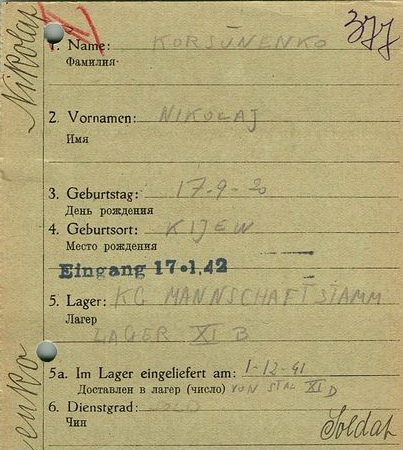 377
1. Name: KORSUNENKO
Фамилия
2. Vornamen: NIKOLAJ
Имя
3. Geburtstag: 17-9-20
День рождения
4. Geburtsort: KIJEW
Место рождения
Eingang 17.1.42
5. Lager: KG MANNSCHAFTSTAMM
Лагер
LAGER XI B
5a. Im Lager eingeliefert am: 1-12-41
Доставлен в лагер (число) VON STAL XI D
6. Dienstgrad: SOLD
Чин
Soldat
Nikolaj
enko